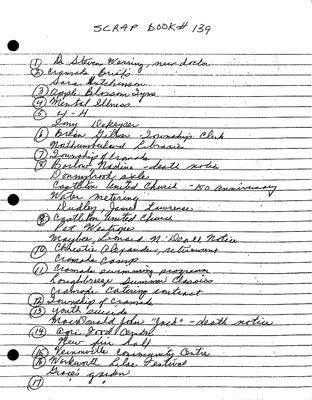 SCRAP BOOK # 139
① Dr. Steven Warring, new doctor
② Cramahe Briefs
Sara Hutchinson
③ Apple Blossom Tyme
④ Mental Illness
⑤ 4-H
Tony
⑥ Brian Township Clerk
Northumberland Libraries
⑦ Township of Cramahe
⑧ Barlow, Nadine - death notice
Donnybrook
Castleton United Church - 150 anniversary
Water metering
Dudley, James Lawrence
⑨ Castleton United Church
Pat Westrope
Maybee, Leonard N. Death Notice
⑩ Christie Alexander, retirement
Cramahe Camp
⑪ Cramahe swimming program
Loughbreeze Summer Classics
Catering contract
⑫ Township of Cramahe
⑬ youth suicide
MacDonald John "Jack" - death notice
⑭ Agri Food Centre
New fire hall
⑮ Community Centre
⑯ Warkworth Lilac Festival
Grace's garden
⑰